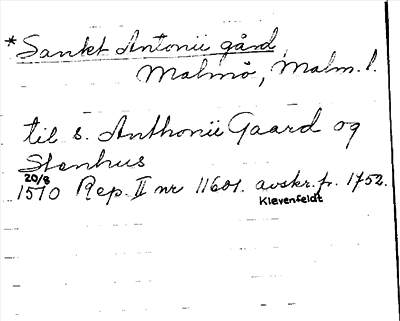 * Sankt Antonii gård,
Malmö, Malm. l.
til s. Anthonii Gaard og
Stenhus
20/8
1510 Rep. II nr 11601. avskr. fr. 1752.
Klevenfeldt